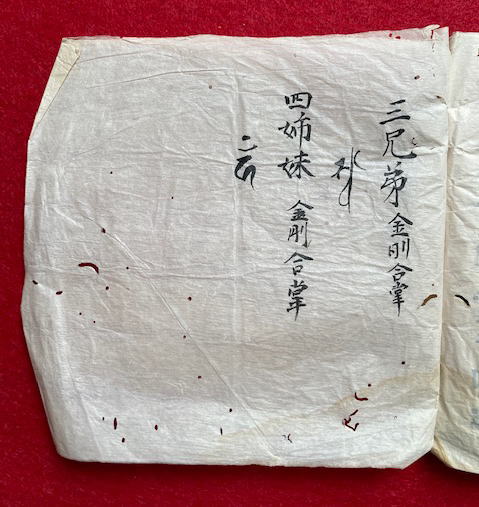 三兄弟 金剛合掌
四姉妹 金剛合掌